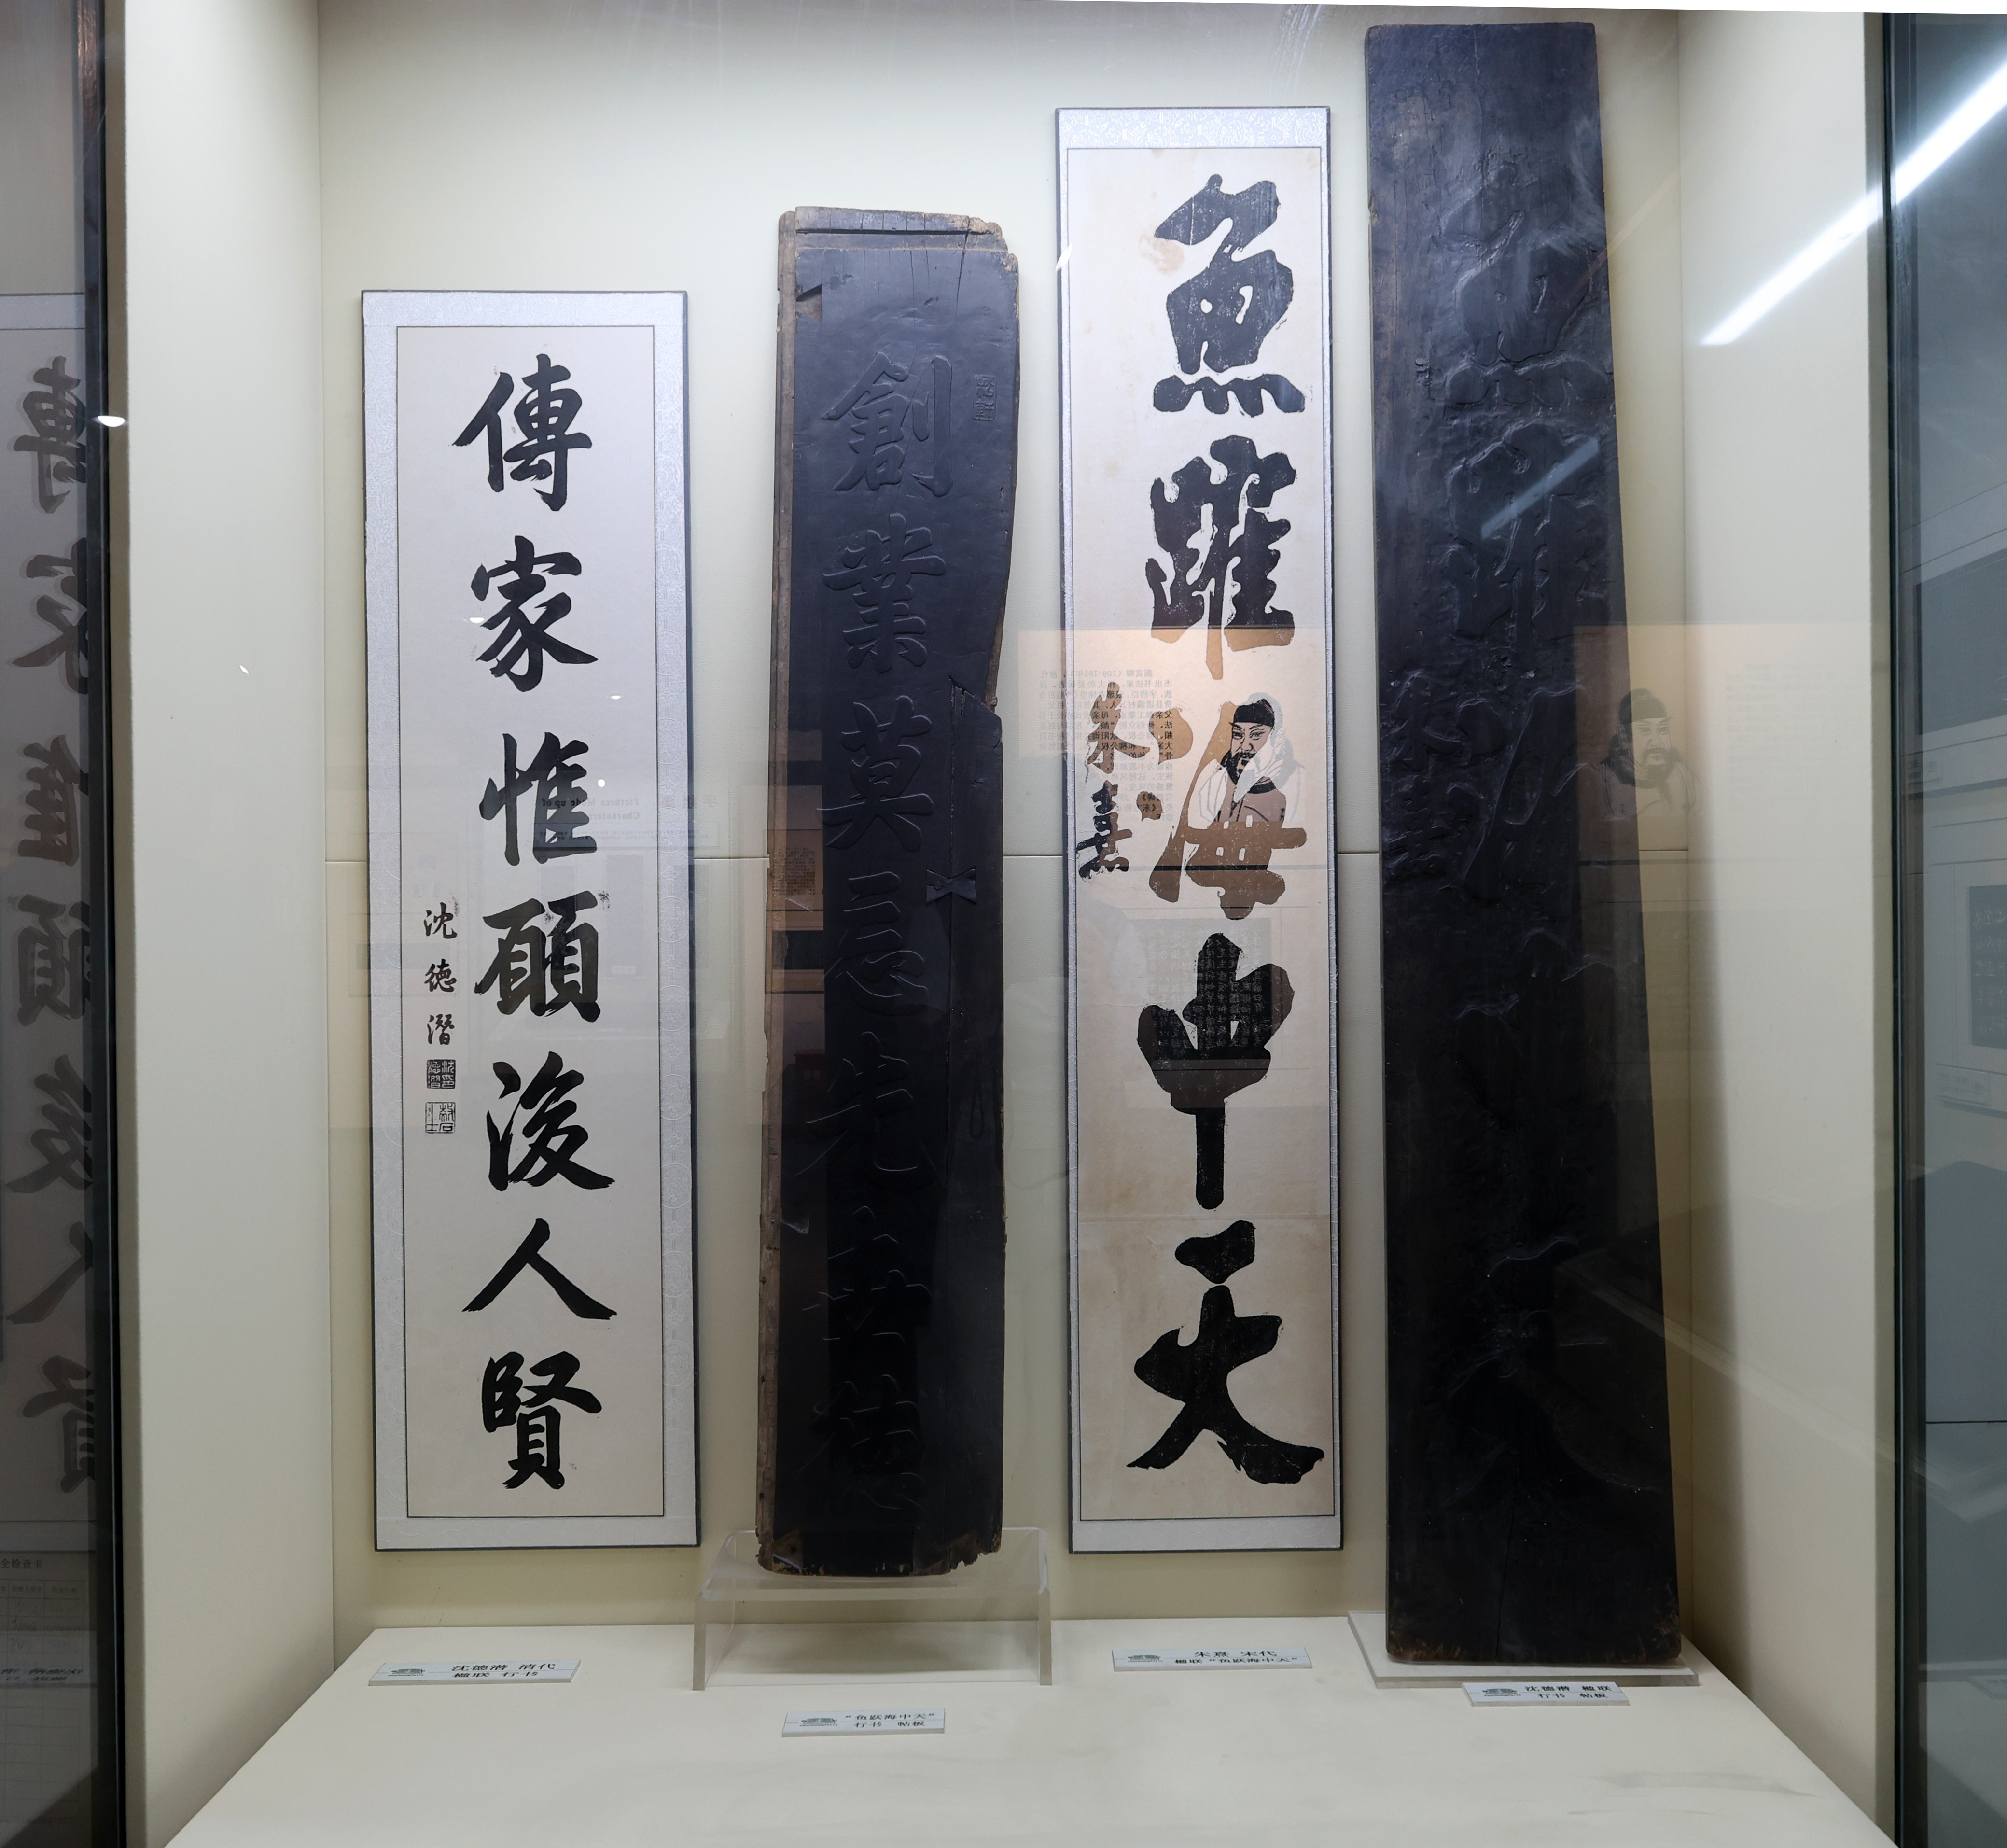 傳家惟願後人賢
沈德潛
創業莫忘先世德
魚躍海中天
朱熹
沈德潜 清代
楹联 行书
“鱼跃海中天”
行书 帖板
朱熹 宋代
楹联“鱼跃海中天”
沈德潜 楹联
行书 帖板